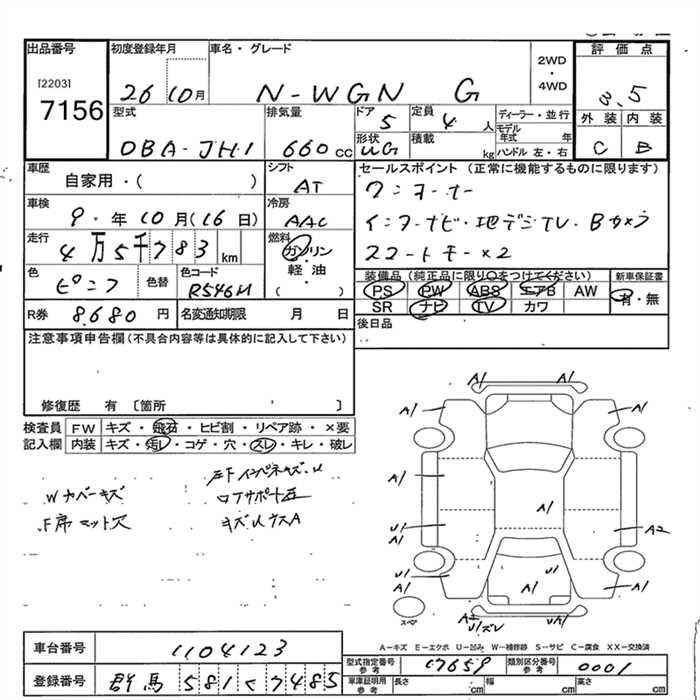 出品番号
[2203]
7156
初度登録年月
26 10月
車名・グレード
N-WGN G
2WD
・
4WD
評価点
3.5
外装 内装
C B
型式
DBA-JH1
排気量
660 cc
ドア
5
定員
4 人
形状
UG
積載
kg
ディーラー・並行
モデル年式 年
ハンドル 左・右
車歴
自家用・( )
シフト
AT
車検
9年10月(16日)
冷房
AAC
走行
4万5千783 km
燃料
ガソリン
・
軽・油
( )
色
ピンク
色替
色コード
R546M
R券 8,680 円
名変通知期限 月 日
セールスポイント(正常に機能するものに限ります)
ワンオーナー
インターナビ・地デジTV・Bカメラ
スマートキー×2
装備品(純正品に限り○をつけてください)
PS PW ABS エアB AW
SR ナビ TV カワ
新車保証書
有・無
後日品
注意事項申告欄(不具合内容等は具体的に記入して下さい)
修復歴 有〔箇所 〕
検査員記入欄
FW キズ・飛石・ヒビ割・リペア跡・×要
内装 キズ・汚レ・コゲ・穴・スレ・キレ・破レ
Wカバーキズ
F席ニット穴
キズUウスA
A1 A1
A1 A1
A1
A1
U1
A1
A2
U1
A1
U1
A1
A1
A2
U1ズレ
UA1
スペア
A-キズ E-エクボ U-凹み W-補修跡 S-サビ C-腐食 XX-交換済
車台番号 1104123
登録番号 群馬 581 く 7485
型式指定番号 参考 17659
類別区分番号 参考 0001
車庫証明用 参考 長さ cm 幅 cm 高さ cm